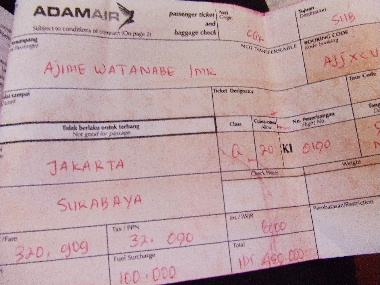 ADAMAIR
passenger ticket
and
baggage check
Subject to conditions of contract (On page 2)
Asal
Origin
CGK
Tujuan
Destination
SUB
NOT TRANSFERABLE
BOOKING CODE
AJIME WATANABE / MR
Ticket Designator
Tour Code
Tidak berlaku untuk terbang
Not good for passage
Class
No. Penerbangan
Flight No.
JAKARTA
Q 20 KI 0190
Weight
SURABAYA
Pembatasan/Restriction
/Fare
320,909
Tax / PPN
32.090
Fuel Surcharge
100.000
Ins / IWJR
6000
Total